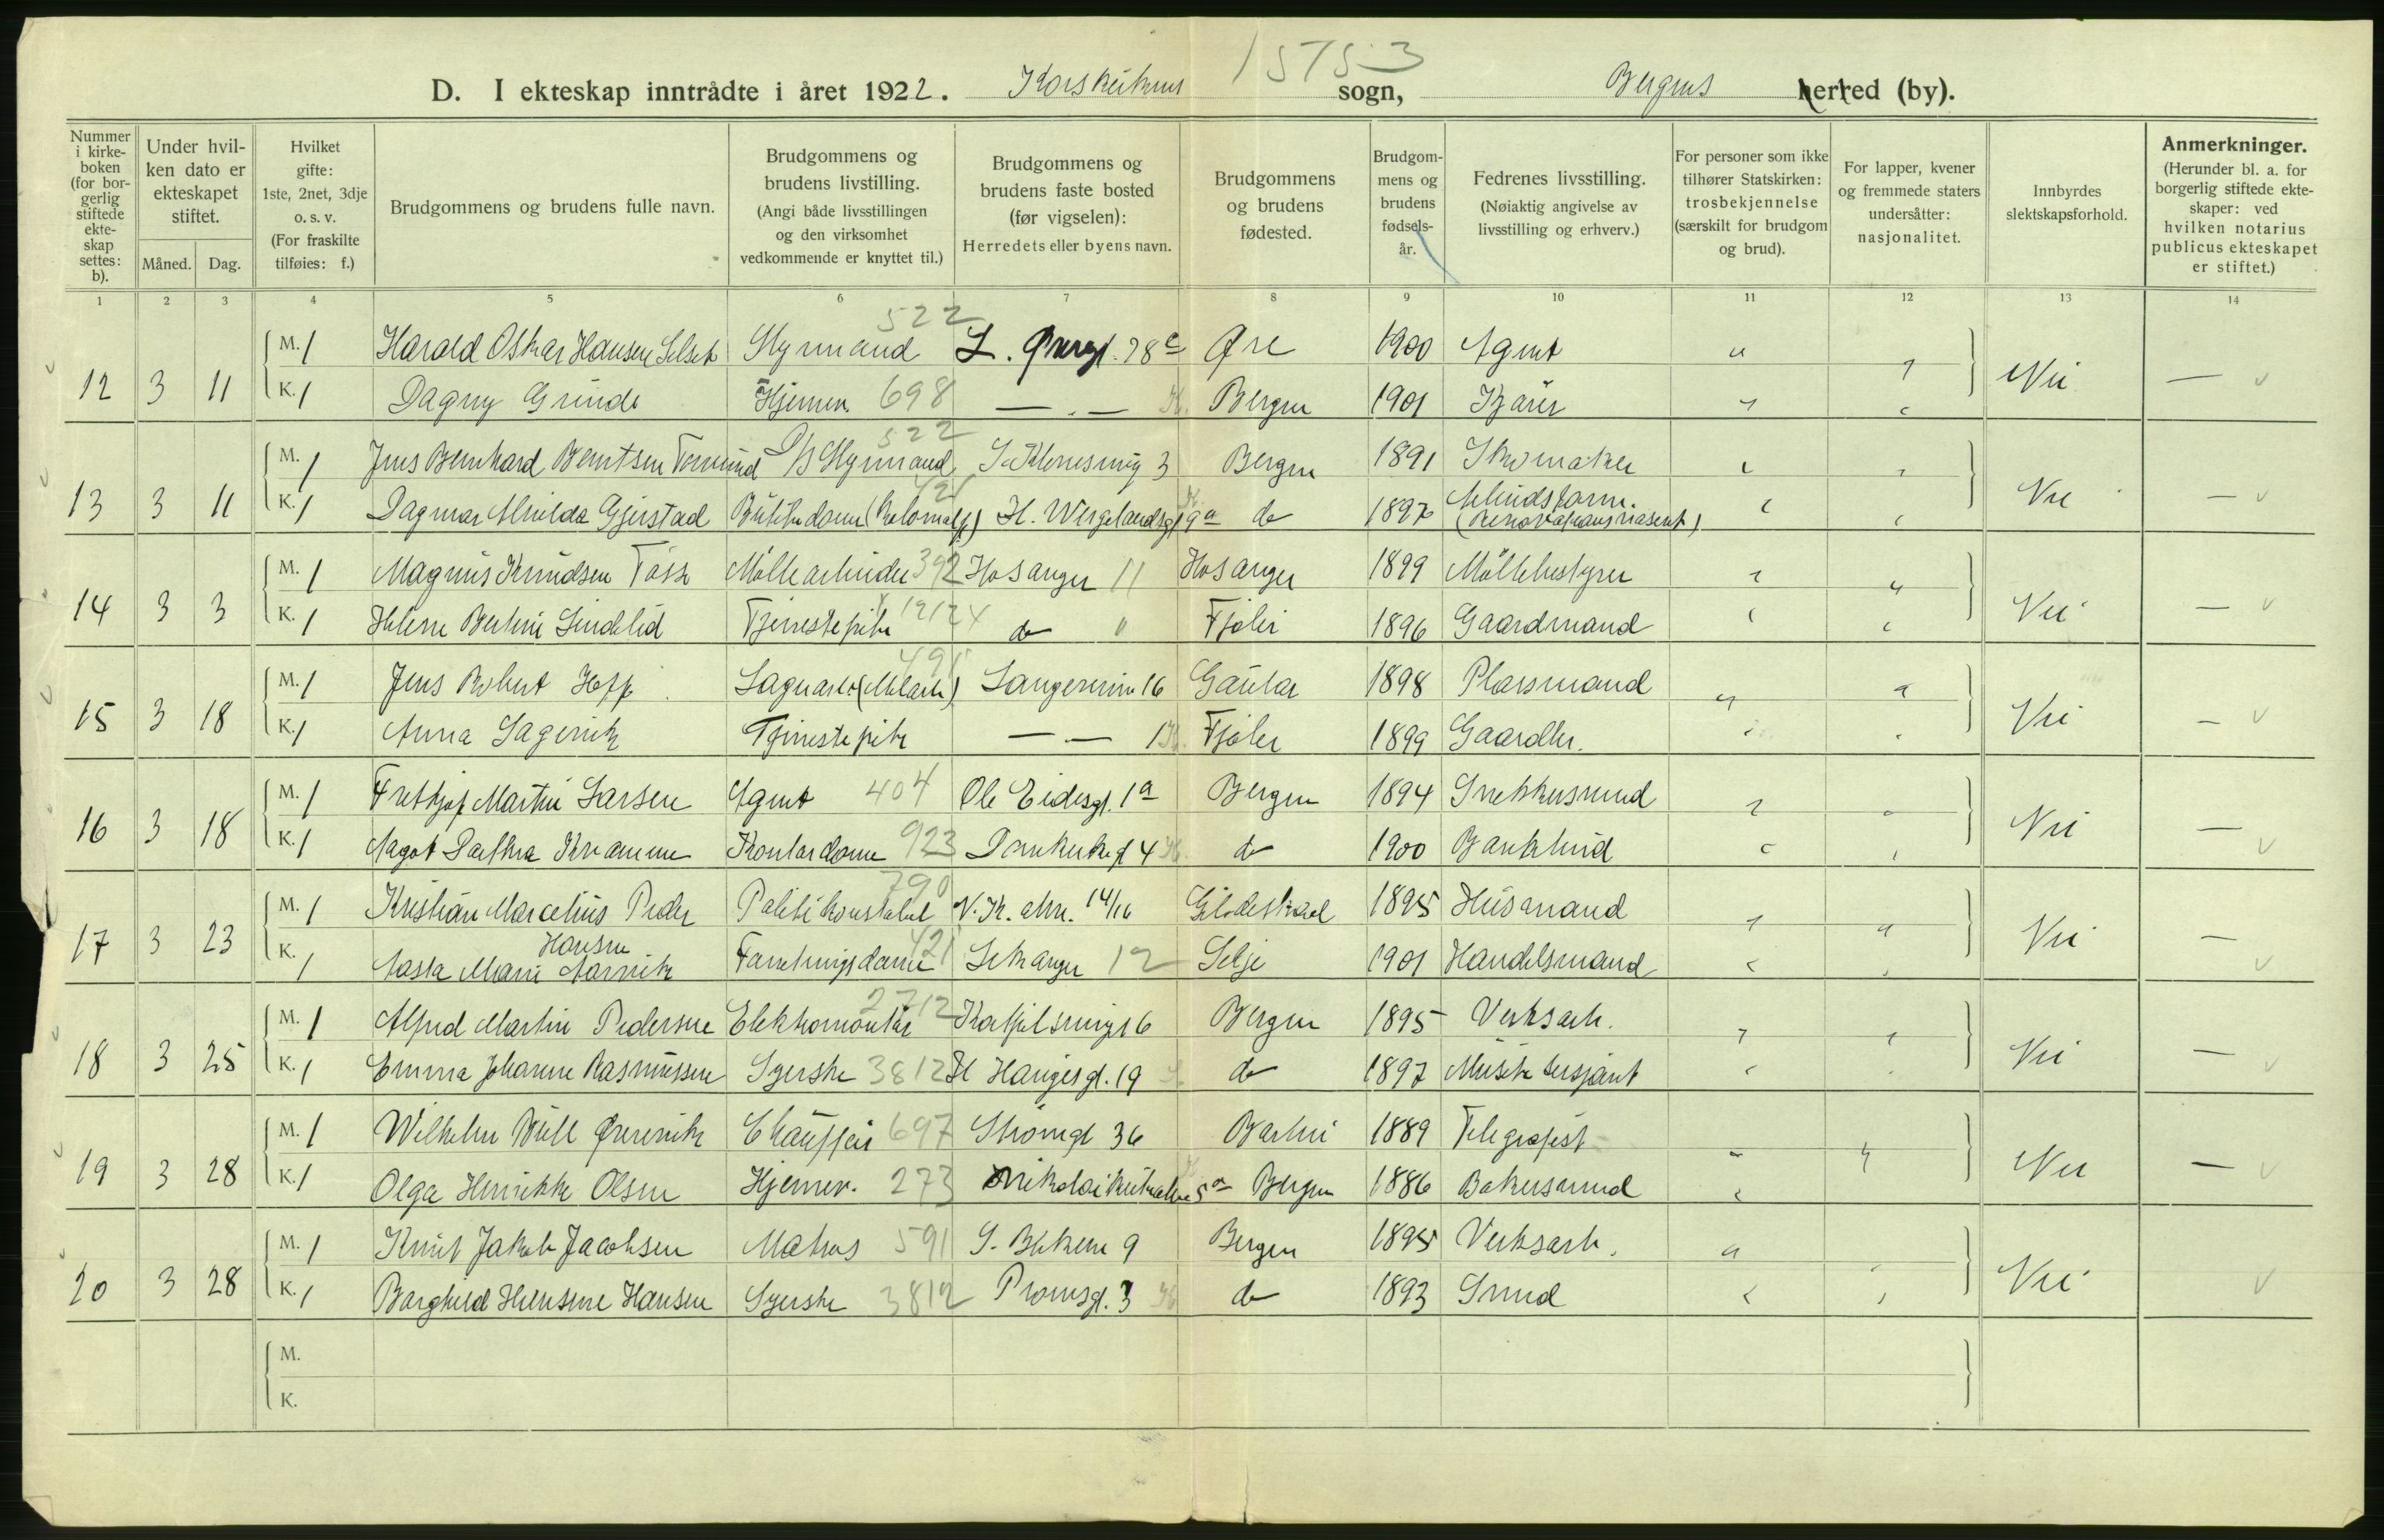 15753
D. I ekteskap inntrådte i året 1922. Korskirkens sogn, Bergens herred (by).
Nummer i kirkeboken (for borgerlig stiftede ekteskap settes: b).
Under hvilken dato er ekteskapet stiftet.
Måned. Dag.
Hvilket gifte: 1ste, 2net, 3dje o. s. v. (For fraskilte tilføies: f.)
Brudgommens og brudens fulle navn.
Brudgommens og brudens livstilling. (Angi både livsstillingen og den virksomhet vedkommende er knyttet til.)
Brudgommens og brudens faste bosted (før vigselen): Herredets eller byens navn.
Brudgommens og brudens fødested.
Brudgommens og brudens fødsels-år.
Fedrenes livsstilling. (Nøiaktig angivelse av livsstilling og erhverv.)
For personer som ikke tilhører Statskirken: trosbekjennelse (særskilt for brudgom og brud).
For lapper, kvener og fremmede staters undersåtter: nasjonalitet.
Innbyrdes slektskapsforhold.
Anmerkninger. (Herunder bl. a. for borgerlig stiftede ekteskaper: ved hvilken notarius publicus ekteskapet er stiftet.)
1 2 3 4 5 6 7 8 9 10 11 12 13 14
12 3 11 M. 1 Harald Oskar Hansen Selset Styrmand 522 28c Øre 1900 Agent Nei —
K. 1 Dagny Grinde Hjemmev. 698 — . — Bergen 1901
13 3 11 M. 1 Jens Bernhard Berntsen D/S Styrmand 522 3 Bergen 1891 Skomaker Nei —
K. 1 Dagmar Alvilda Gjerstad Butikkdame 421 H. Wergelandsgt 9a do 1897 Arbeidsform.
14 3 3 M. 1 Magnus Knudsen Foss Möllearbeider 392 Hosanger 11 Hosanger 1899 Möllebestyrer Nei —
K. 1 Helene Bertine Lindelid Tjenestepike 12124 do Fjaler 1896 Gaardmand
15 3 18 M. 1 Jens Robert Hopp Lagerarb. 491 16 Gaular 1898 Plassmand Nei —
K. 1 Anna Sagevik Tjenestepike — . — Fjaler 1899 Gaardbr.
16 3 18 M. 1 Fritjof Martin Larsen Agent 404 Ole Eidesgt. 1a Bergen 1894 Snekkersvend Nei —
K. 1 Aagot Dorthea Kramme Kontordame 923 Domkirkegt 4 do 1900 Bankbud
17 3 23 M. 1 Kristian Marcelius Peder Hansen Politikonstabel 790 N. Kr. alm. 14/16 Gildeskaal 1895 Husmand Nei —
K. 1 Aasta Marie Aarvik Forretningsdame 421 12 Selje 1901 Handelsmand
18 3 25 M. 1 Alfred Martin Pedersen Elektromontör 2712 Ketjelsmug 6 Bergen 1895 Verksarb. Nei —
K. 1 Emma Johanne Rasmussen Syerske 3812 Haugesgt. 19 do 1897 Musik sersjant
19 3 28 M. 1 Wilhelm Bull Örevik Chauffeur 697 Strömgt 36 1889 Telegrafist Nei —
K. 1 Olga Henrikke Olsen Hjemmev. 273 Nikolaikirkealm 5a Bergen 1886 Bakersvend
20 3 28 M. 1 Knut Jakob Jacobsen Matros 591 S. Blekevei 9 Bergen 1895 Verksarb. Nei
K. 1 Borghild Hensine Hansen Syerske 3812 Promsgt. 3 do 1893 Smed
M.
K.